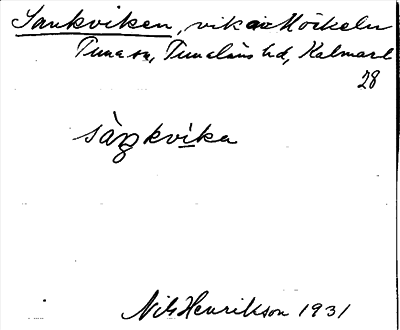 Sankviken, vik av Möckeln
Tuna sn, Tunaläns hd, Kalmar l
28
sàŋkvika
Nils Henrikson 1931